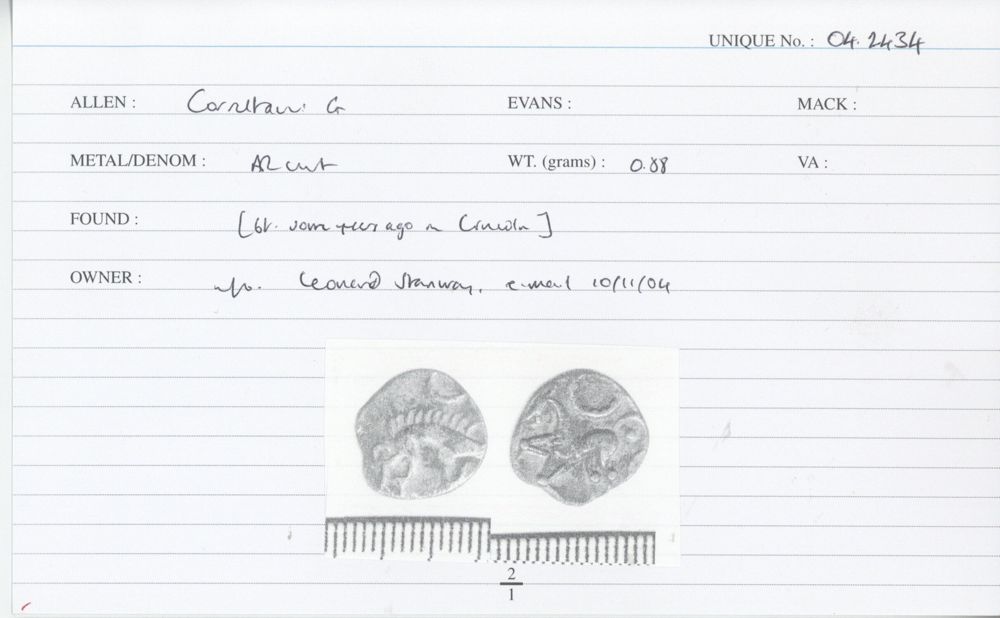 UNIQUE No. : 04.2434
ALLEN : Corieltauvi G EVANS : MACK :
METAL/DENOM : AR unit WT. (grams) : 0.88 VA :
FOUND : [bt. some years ago in Lincoln]
OWNER : info. Leonard Stanway, e-mail 10/11/04
2
1